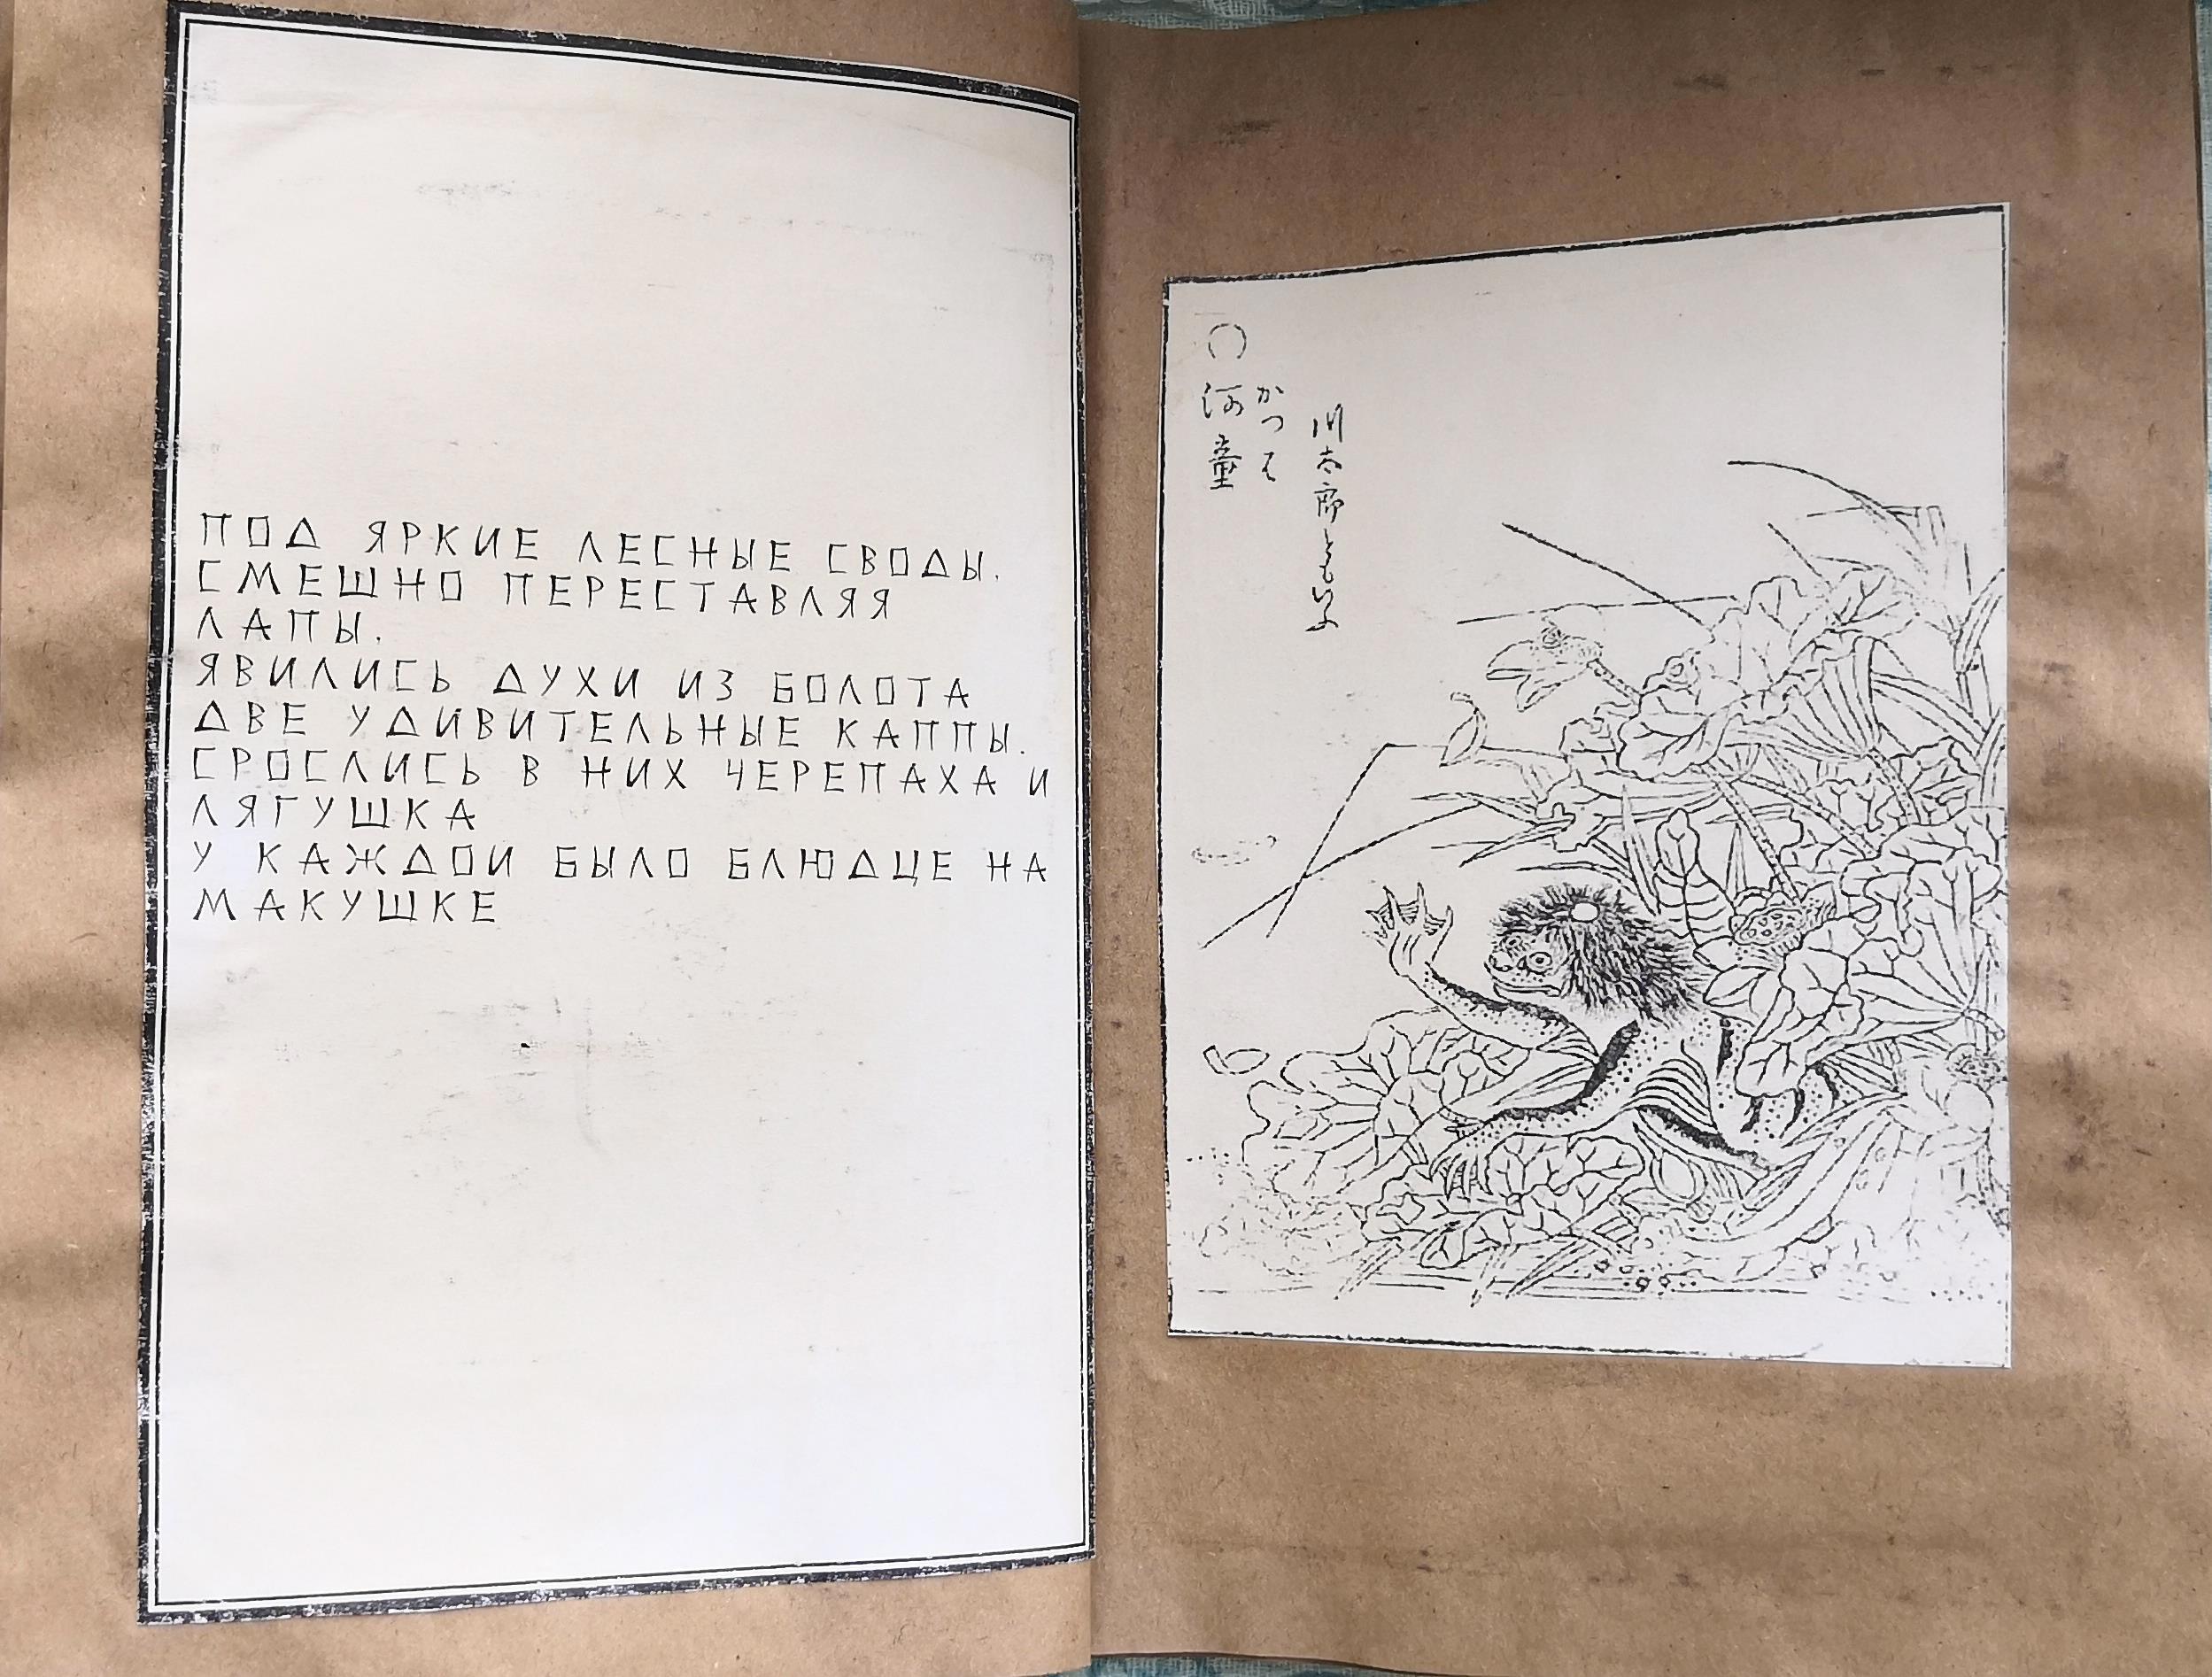 ПОД ЯРКИЕ ЛЕСНЫЕ СВОДЫ.
СМЕШНО ПЕРЕСТАВЛЯЯ
ЛАПЫ.
ЯВИЛИСЬ ДУХИ ИЗ БОЛОТА
ДВЕ УДИВИТЕЛЬНЫЕ КАППЫ.
СРОСЛИСЬ В НИХ ЧЕРЕПАХА И
ЛЯГУШКА
У КАЖДОИ БЫЛО БЛЮДЦЕ НА
МАКУШКЕ
川太郎ともいふ
かつは
〇河童